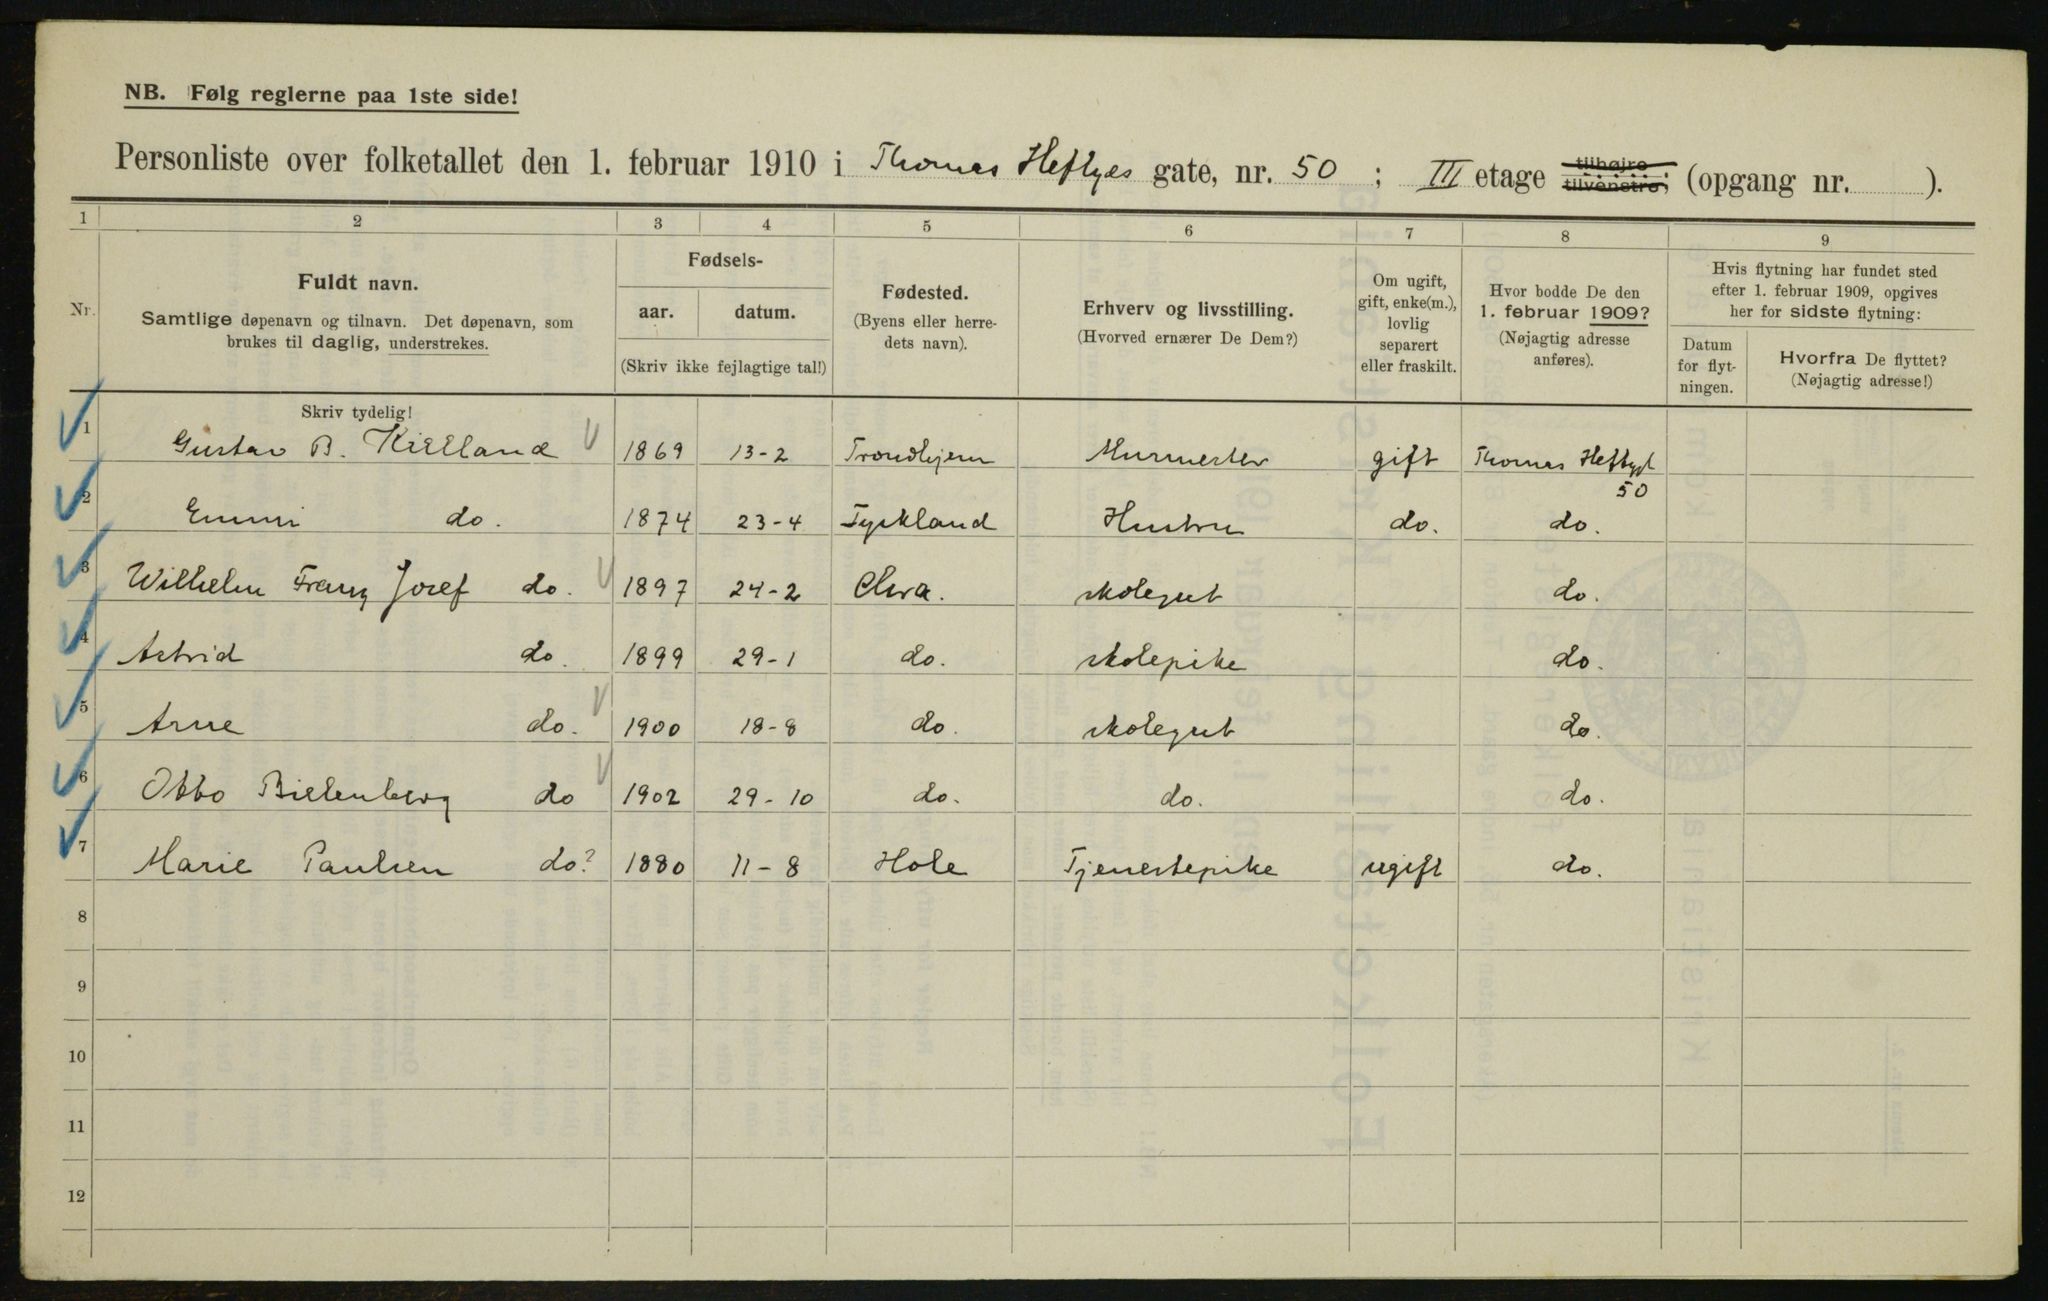 NB. Følg reglerne paa 1ste side!
Personliste over folketallet den 1. februar 1910 i Thomas Heftyes gate, nr. 50 ; III etage tilhøjre tilvenstre; (opgang nr. ).
1 2 3 4 5 6 7 8 9
Nr.
Fuldt navn.
Samtlige døpenavn og tilnavn. Det døpenavn, som
brukes til daglig, understrekes.
Fødsels-
aar. datum.
(Skriv ikke fejlagtige tal!)
Fødested.
(Byens eller herre-
dets navn).
Erhverv og livsstilling.
(Hvorved ernærer De Dem?)
Om ugift,
gift, enke(m.),
lovlig
separert
eller fraskilt.
Hvor bodde De den
1. februar 1909?
(Nøjagtig adresse
anføres).
Hvis flytning har fundet sted
efter 1. februar 1909, opgives
her for sidste flytning:
Datum
for flyt-
ningen.
Hvorfra De flyttet?
(Nøjagtig adresse!)
Skriv tydelig!
1 Gustav B. Kielland 1869 13-2 Trondhjem Murmester gift Thomas Heftygt
50
2 Emmi do. 1874 23-4 Tyskland Hustru do. do.
3 Wilhelm Franz Josef do. 1897 24-2 skolegut do.
4 Astrid do. 1899 29-1 do. skolepike do.
5 Arne do. 1900 18-8 do. skolegut do.
6 Otto Bielenberg do 1902 29-10 do. do. do.
7 Marie Paulsen do? 1880 11-8 Hole Tjenestepike ugift do.
8
9
10
11
12